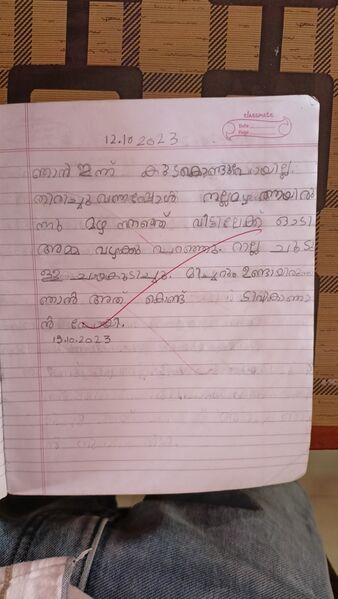 classmate
Date
Page
12.10.2023
ഞാൻ ഇന്ന് കുടകൊണ്ടുപോയില്ല.
തിരിച്ചു വന്നപ്പോൾ നല്ലമഴ ആയിരു
ന്നു മഴ നനഞ്ഞ് വീട്ടിലേക്ക് ഓടി
അമ്മ വഴക്കു പറഞ്ഞു. നല്ല ചൂടു
ള്ള ചായകുടിച്ചു. മിച്ചറും ഉണ്ടായിരു
ഞാൻ അത കൊണ്ട് ടിവികാണാ
ൻ പോയി.
13.10.2023